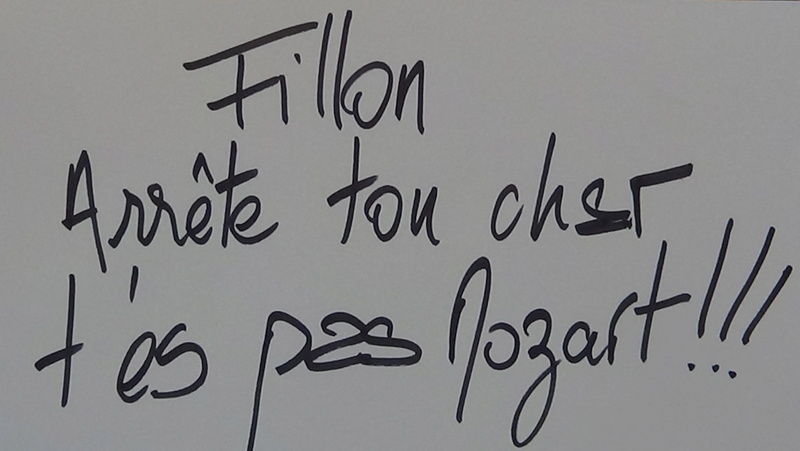 Fillon
Arrête ton char
t'es pas Mozart!!!